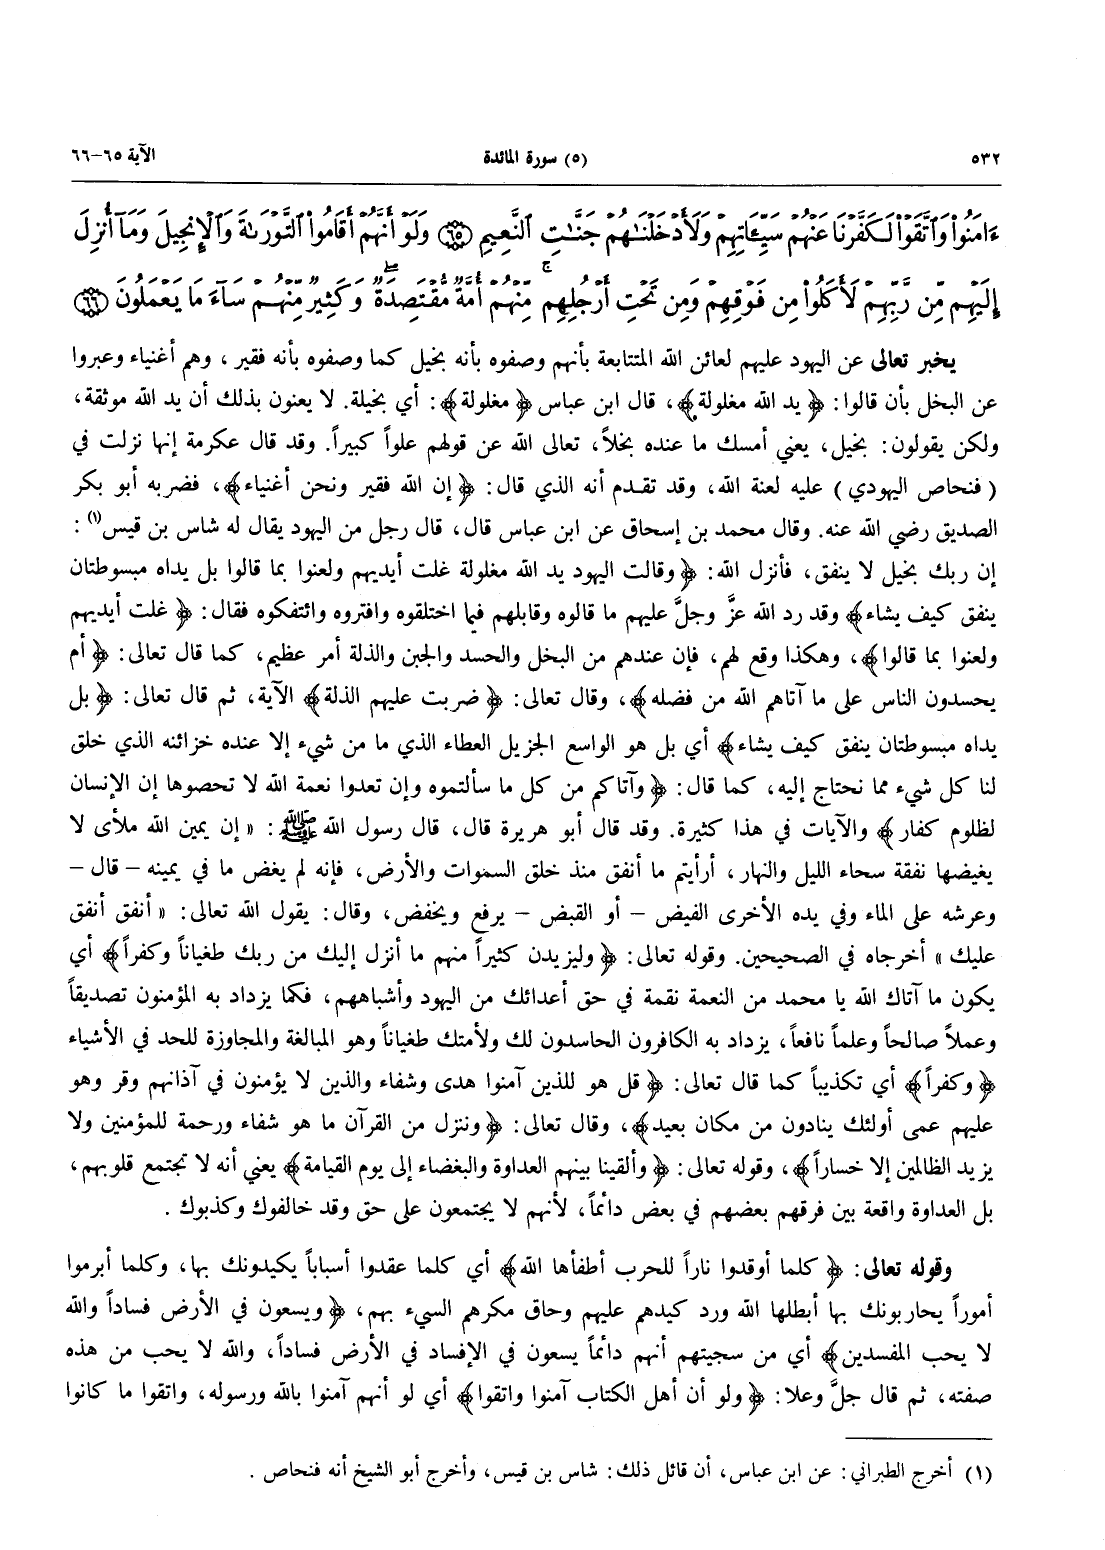 ٥٣٢ (٥) سورة المائدة الآية ٦٥-٦٦
ءَامَنُواْ وَٱتَّقَوْاْ لَكَفَّرْنَا عَنْهُمْ سَيِّـَٔاتِهِمْ وَلَأَدْخَلْنَـٰهُمْ جَنَّـٰتِ ٱلنَّعِيمِ ﴿٦٥﴾ وَلَوْ أَنَّهُمْ أَقَامُواْ ٱلتَّوْرَىٰةَ وَٱلْإِنجِيلَ وَمَآ أُنزِلَ
إِلَيْهِم مِّن رَّبِّهِمْ لَأَكَلُواْ مِن فَوْقِهِمْ وَمِن تَحْتِ أَرْجُلِهِم ۚ مِّنْهُمْ أُمَّةٌ مُّقْتَصِدَةٌ ۖ وَكَثِيرٌ مِّنْهُمْ سَآءَ مَا يَعْمَلُونَ ﴿٦٦﴾
يخبر تعالى عن اليهود عليهم لعائن الله المتتابعة بأنهم وصفوه بأنه بخيل كما وصفوه بأنه فقير ، وهم أغنياء وعبروا
عن البخل بأن قالوا: ﴿ يد الله مغلولة ﴾، قال ابن عباس ﴿ مغلولة ﴾: أي بخيلة. لا يعنون بذلك أن يد الله موثقة،
ولكن يقولون: بخيل، يعني أمسك ما عنده بخلاً، تعالى الله عن قولهم علواً كبيراً. وقد قال عكرمة إنها نزلت في
( فنحاص اليهودي ) عليه لعنة الله، وقد تقدم أنه الذي قال: ﴿ إن الله فقير ونحن أغنياء ﴾، فضربه أبو بكر
الصديق رضي الله عنه. وقال محمد بن إسحاق عن ابن عباس قال، قال رجل من اليهود يقال له شاس بن قيس(١) :
إن ربك بخيل لا ينفق، فأنزل الله: ﴿ وقالت اليهود يد الله مغلولة غلت أيديهم ولعنوا بما قالوا بل يداه مبسوطتان
ينفق كيف يشاء ﴾ وقد رد الله عزَّ وجلَّ عليهم ما قالوه وقابلهم فيما اختلقوه وافتروه وائتفكوه فقال: ﴿ غلت أيديهم
ولعنوا بما قالوا ﴾، وهكذا وقع لهم، فإن عندهم من البخل والحسد والجبن والذلة أمر عظيم، كما قال تعالى: ﴿ أم
يحسدون الناس على ما آتاهم الله من فضله ﴾، وقال تعالى: ﴿ ضربت عليهم الذلة ﴾ الآية، ثم قال تعالى: ﴿ بل
يداه مبسوطتان ينفق كيف يشاء ﴾ أي بل هو الواسع الجزيل العطاء الذي ما من شيء إلا عنده خزائنه الذي خلق
لنا كل شيء مما نحتاج إليه، كما قال: ﴿ وآتاكم من كل ما سألتموه وإن تعدوا نعمة الله لا تحصوها إن الإنسان
لظلوم كفار ﴾ والآيات في هذا كثيرة. وقد قال أبو هريرة قال، قال رسول الله ﷺ: « إن يمين الله ملأى لا
يغيضها نفقة سحاء الليل والنهار، أرأيتم ما أنفق منذ خلق السموات والأرض، فإنه لم يغض ما في يمينه - قال -
وعرشه على الماء وفي يده الأخرى الفيض - أو القبض - يرفع ويخفض، وقال: يقول الله تعالى: « أنفق أنفق
عليك » أخرجاه في الصحيحين. وقوله تعالى: ﴿ وليزيدن كثيراً منهم ما أنزل إليك من ربك طغياناً وكفراً ﴾ أي
يكون ما آتاك الله يا محمد من النعمة نقمة في حق أعدائك من اليهود وأشباههم، فكما يزداد به المؤمنون تصديقاً
وعملاً صالحاً وعلماً نافعاً، يزداد به الكافرون الحاسدون لك ولأمتك طغياناً وهو المبالغة والمجاوزة للحد في الأشياء
﴿ وكفراً ﴾ أي تكذيباً كما قال تعالى: ﴿ قل هو للذين آمنوا هدى وشفاء والذين لا يؤمنون في آذانهم وقر وهو
عليهم عمى أولئك ينادون من مكان بعيد ﴾، وقال تعالى: ﴿ وننزل من القرآن ما هو شفاء ورحمة للمؤمنين ولا
يزيد الظالمين إلا خساراً ﴾، وقوله تعالى: ﴿ وألقينا بينهم العداوة والبغضاء إلى يوم القيامة ﴾ يعني أنه لا تجتمع قلوبهم،
بل العداوة واقعة بين فرقهم بعضهم في بعض دائماً، لأنهم لا يجتمعون على حق وقد خالفوك وكذبوك .
وقوله تعالى: ﴿ كلما أوقدوا ناراً للحرب أطفأها الله ﴾ أي كلما عقدوا أسباباً يكيدونك بها، وكلما أبرموا
أموراً يحاربونك بها أبطلها الله ورد كيدهم عليهم وحاق مكرهم السيء بهم، ﴿ ويسعون في الأرض فساداً والله
لا يحب المفسدين ﴾ أي من سجيتهم أنهم دائماً يسعون في الإفساد في الأرض فساداً، والله لا يحب من هذه
صفته، ثم قال جلَّ وعلا: ﴿ ولو أن أهل الكتاب آمنوا واتقوا ﴾ أي لو أنهم آمنوا بالله ورسوله، واتقوا ما كانوا
(١) أخرج الطبراني: عن ابن عباس، أن قائل ذلك: شاس بن قيس، وأخرج أبو الشيخ أنه فنحاص .